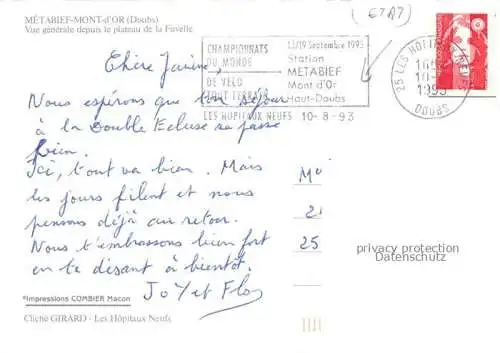 MÉTABIEF-MONT-d'OR (Doubs)
Vue générale depuis le plateau de la Fuvelle
(ETAT)
CHAMPIONNATS
DU MONDE
DE VELO
TOUT TERRAIN
13/19 Septembre 1993
Station
METABIEF
Mont d'Or
Haut-Doubs
LES HOPITAUX NEUFS 10-8-93
25 LES HOPITAUX NEUFS
10-8
1993
DOUBS
Chère Janine,
Nous espérons que ton séjour
à la Double Ecluse se passe
bien.
Ici, tout va bien. Mais
les jours filent et nous
pensons déjà au retour.
Nous t'embrassons bien fort
en te disant à bientôt.
Joÿ et Flo
M
2
25
privacy protection
Datenschutz
Impressions COMBIER Macon
Cliché GIRARD - Les Hôpitaux Neufs